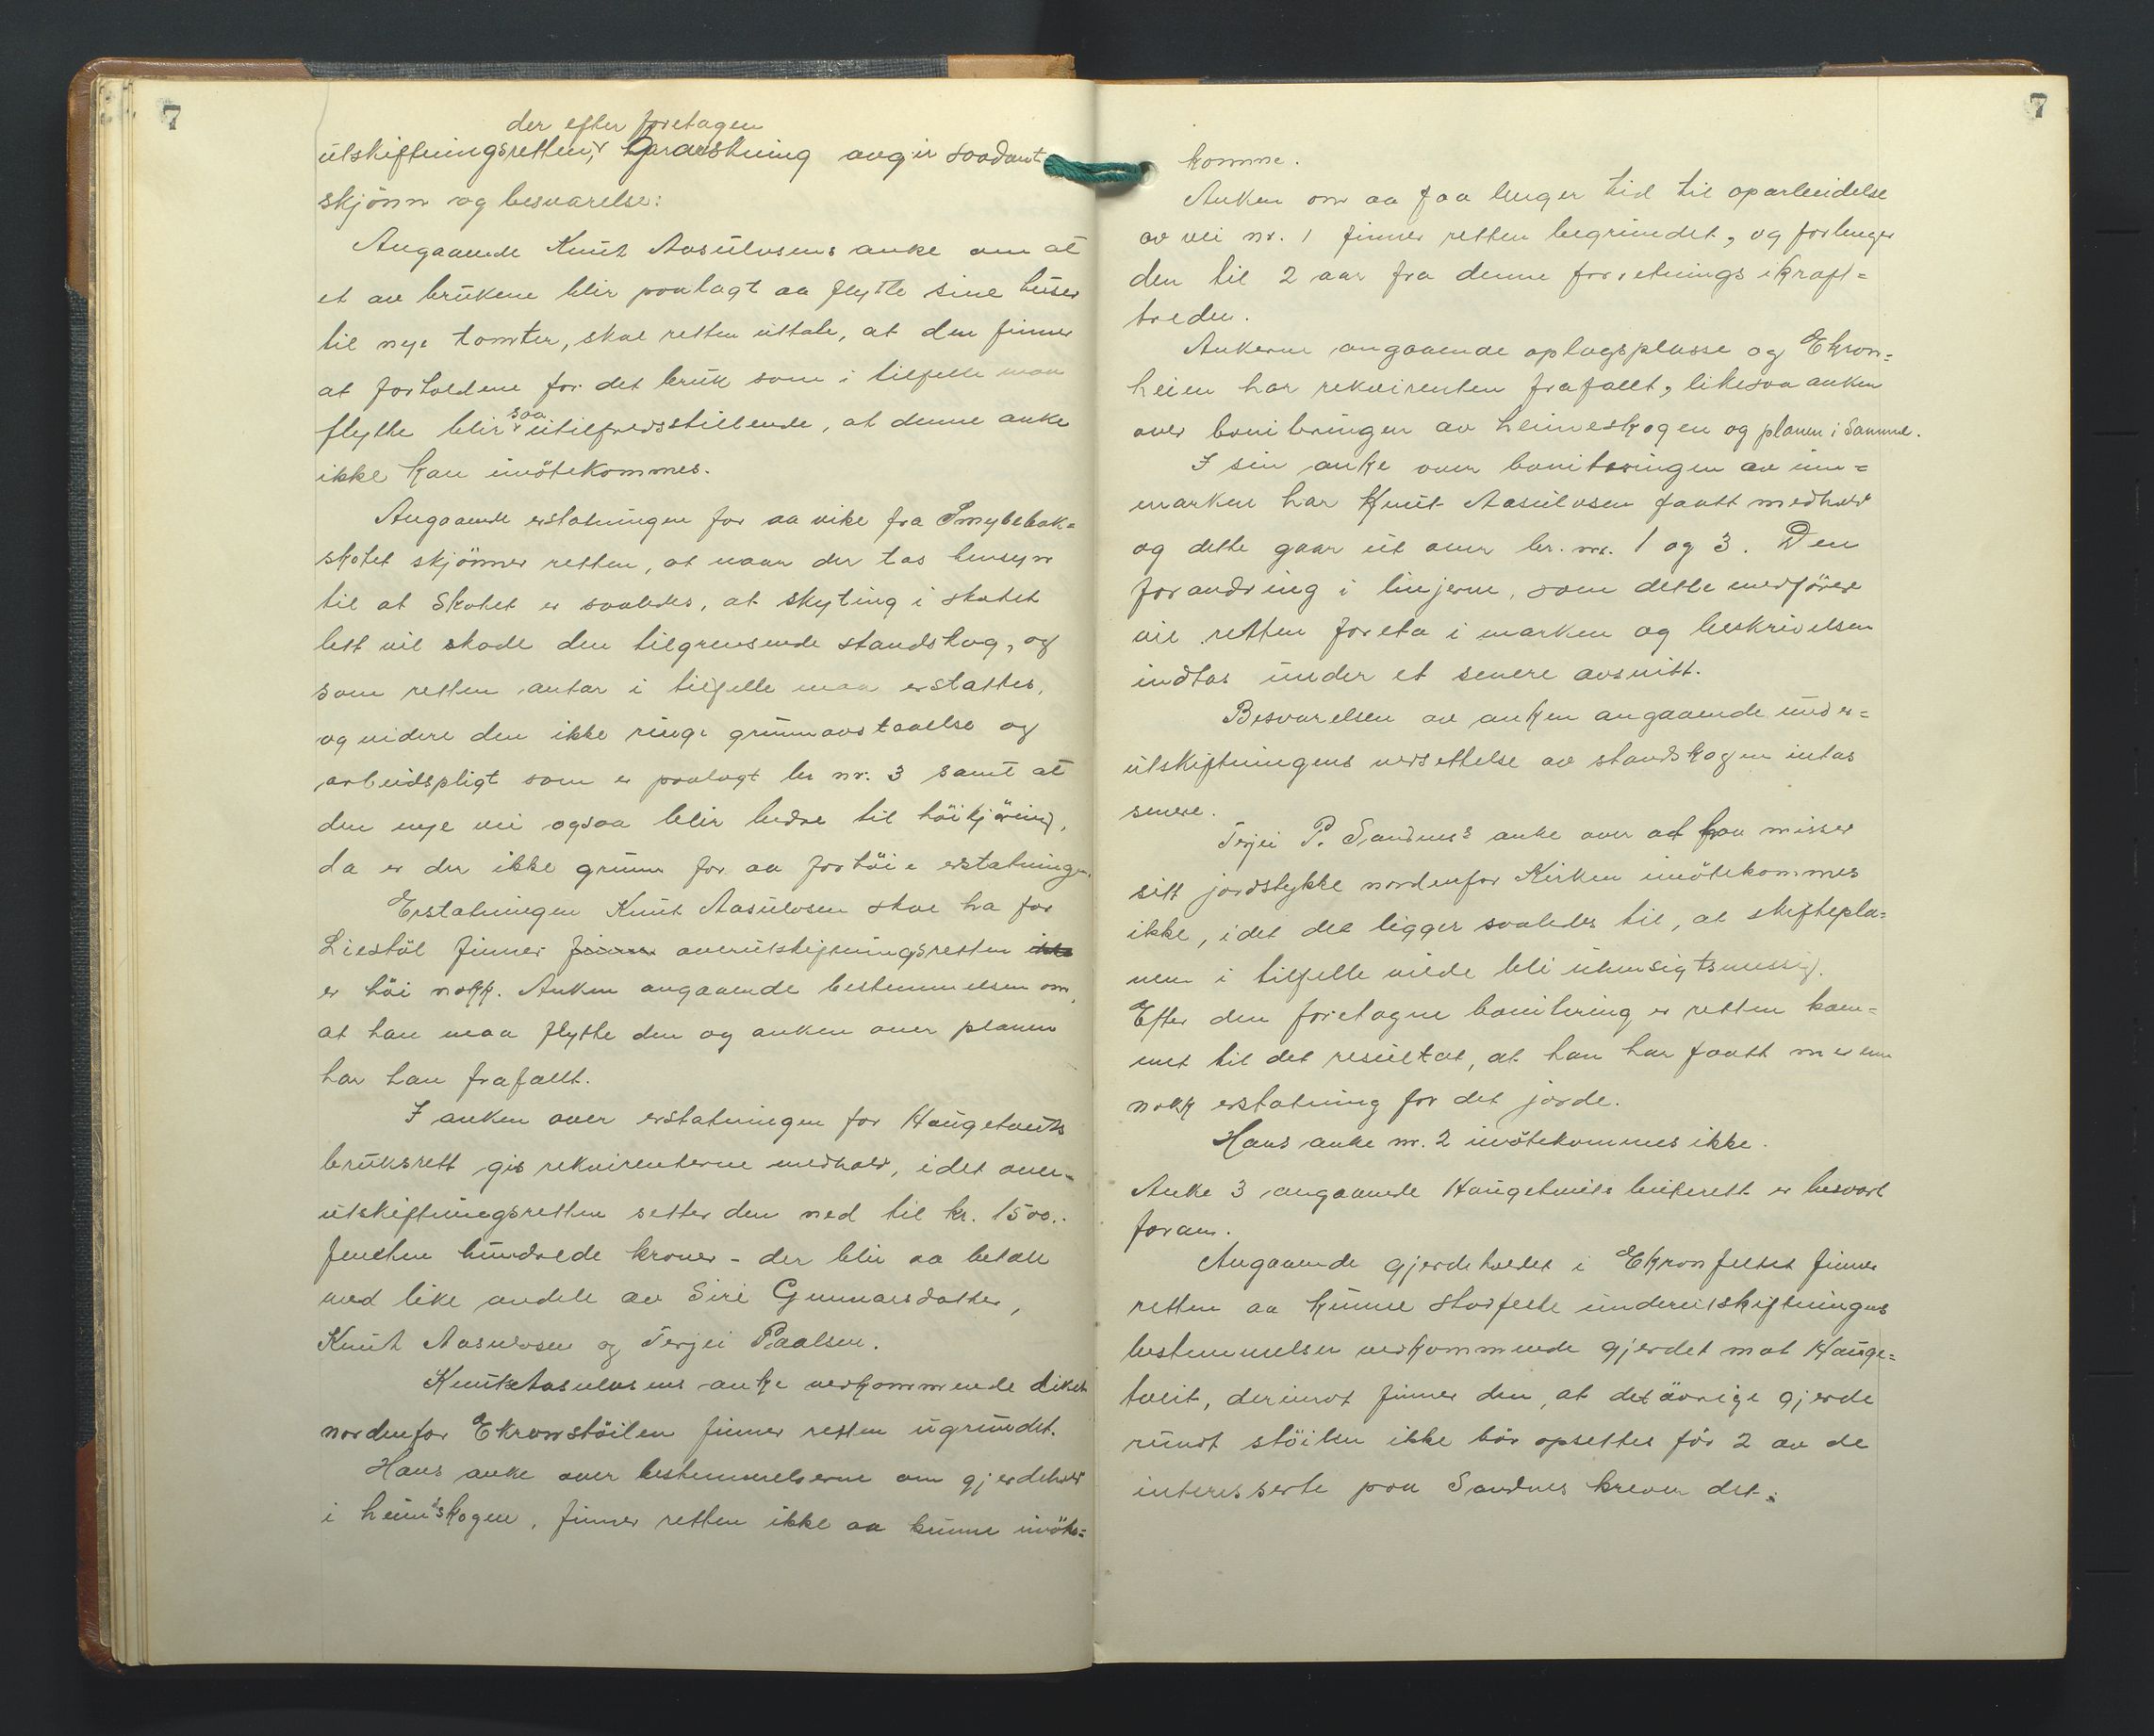 7
der efter foretagen
utskiftningsretten, Gransking avgir saadant
skjönn og besvarelse:
Angaaende Knut Aasulvsens anke om at
et av brukene blir paalagt aa flytte sine huser
til nye tomter, skal retten uttale, at den finner
at forholdene for det bruk som i tilfelle maa
flytte blir saa utilfredsstillende, at denne anke
ikke kan imötekommes.
Angaaende erstatningen for aa vike fra Smylebak=
skotet skjönner retten, at naar der tas hensyn
til at Skotet er saaledes, at skyting i skotet
lett vil skade den tilgrensende standskog, og
som retten antar i tilfelle maa erstattes,
og videre den ikke ringe grunnavstaaelse og
arbeidspligt som er paalagt br nr. 3 samt at
den nye vei ogsaa blir bedre til höikjöring,
da er der ikke grunn for aa forhöie erstatningen.
Erstatningen Knut Aasulvsen skal ha for
Liestöl finner finner overutskiftningsretten ikke
er höi nokk. Anken angaaende bestemmelsen om,
at han maa flytte den og anken over planen
har han frafallt.
I anken over erstatningen for Haugetveits
bruksrett gis rekvirenterne medhold, idet over-
utskiftningsretten setter den ned til kr. 1500.-
femten hundrede kroner - der blir aa betale
med like andele av Siri Gunnarsdatter,
Knut Aasulvsen og Terjei Paalsen.
Knut Aasulvsens anke vedkommende diket
nordenfor Ekronstöilen finner retten ugrundet.
Hans anke over bestemmelserne om gjerdehold
i heimeskogen, finner retten ikke aa kunne imöte=
7
komme.
Anken om aa faa lenger tid til oparbeidelse
av vei nr. 1 finner retten begrundet, og forlenger
den til 2 aar fra denne forretnings ikraft=
treden.
Ankerne angaaende oplagsplasse og Ekron=
heien har rekvirenten frafallt, likesaa anken
over boniteringen av heimeskogen og planen i samme.
I sin anke over boniteringen av inn=
marken har Knut Aasulvsen faatt medhold
og dette gaar ut over br. nr. 1 og 3. Den
forandring i linjerne, som dette medförer
vil retten foreta i marken og beskrivelsen
indtas under et senere avsnitt.
Besvarelsen av anken angaaende under=
utskiftningens verdsettelse av standskogen intas
senere.
Terjei P. Sandnes's anke over at han misser
sitt jordstykke nordenfor Kirken imötekommes
ikke, idet det ligger saaledes til, at skiftepla=
nen i tilfelle vilde bli uhensigtsmessig.
Efter den foretagne bonitering er retten kom=
met til det resultat, at han har faatt mer enn
nokk erstatning for det jorde.
Hans anke nr. 2 imötekommes ikke.
Anke 3 angaaende Haugetveits beiterett er besvart
foran.
Angaaende gjerdeholdet i Ekronfeltet finner
retten aa kunne stadfeste underutskiftningens
bestemmelser vedkommende gjerdet mot Hauge=
tveit, derimot finner den, at det övrige gjerde
rundt stöilen ikke bör opsettes för 2 av de
interesserte paa Sandnes krever det.